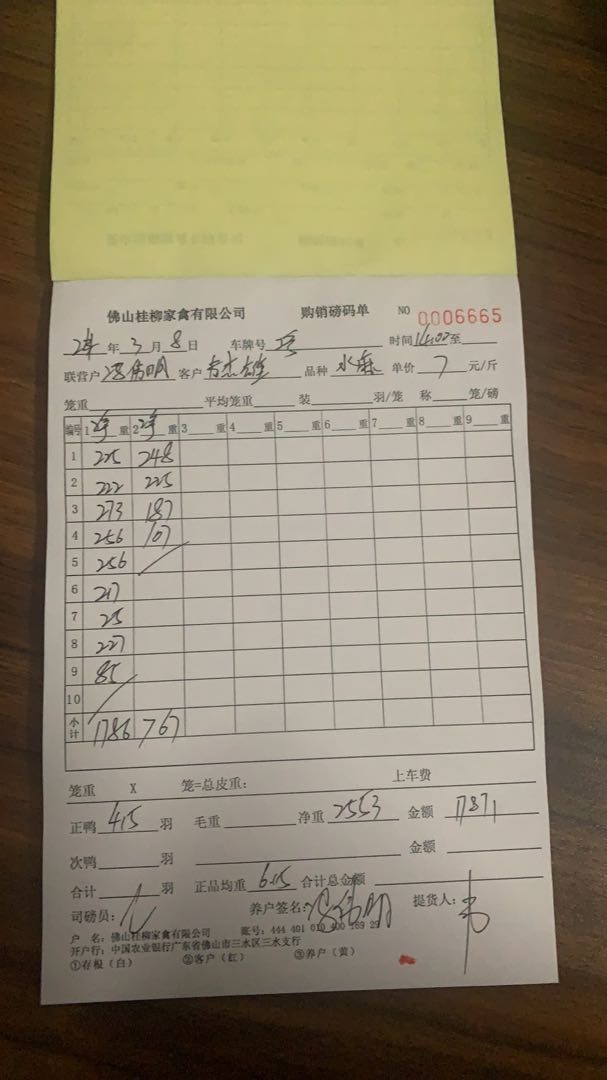 佛山桂柳家禽有限公司 购销磅码单 NO 0006665
年 3 月 8 日 车牌号 时间 14:00 至
联营户 伟明 客户 杰雄 品种 水麻 单价 7 元/斤
笼重 平均笼重 装 羽/笼 称 笼/磅
编号 1 重 2 重 3 重 4 重 5 重 6 重 7 重 8 重 9 重
1 225 248
2 222 225
3 273 187
4 256 107
5 256
6 217
7 25
8 227
9 85
10
小计 1786 767
笼重 X 笼=总皮重: 上车费
正鸭 415 羽 毛重 净重 2553 金额 17871
次鸭 羽 金额
合计 羽 正品均重 6.15 合计总金额
司磅员: 养户签名: 伟明 提货人:
户 名: 佛山桂柳家禽有限公司 账号: 444 401 010 400 189 29
开户行: 中国农业银行广东省佛山市三水区三水支行
①存根(白) ②客户(红) ③养户(黄)